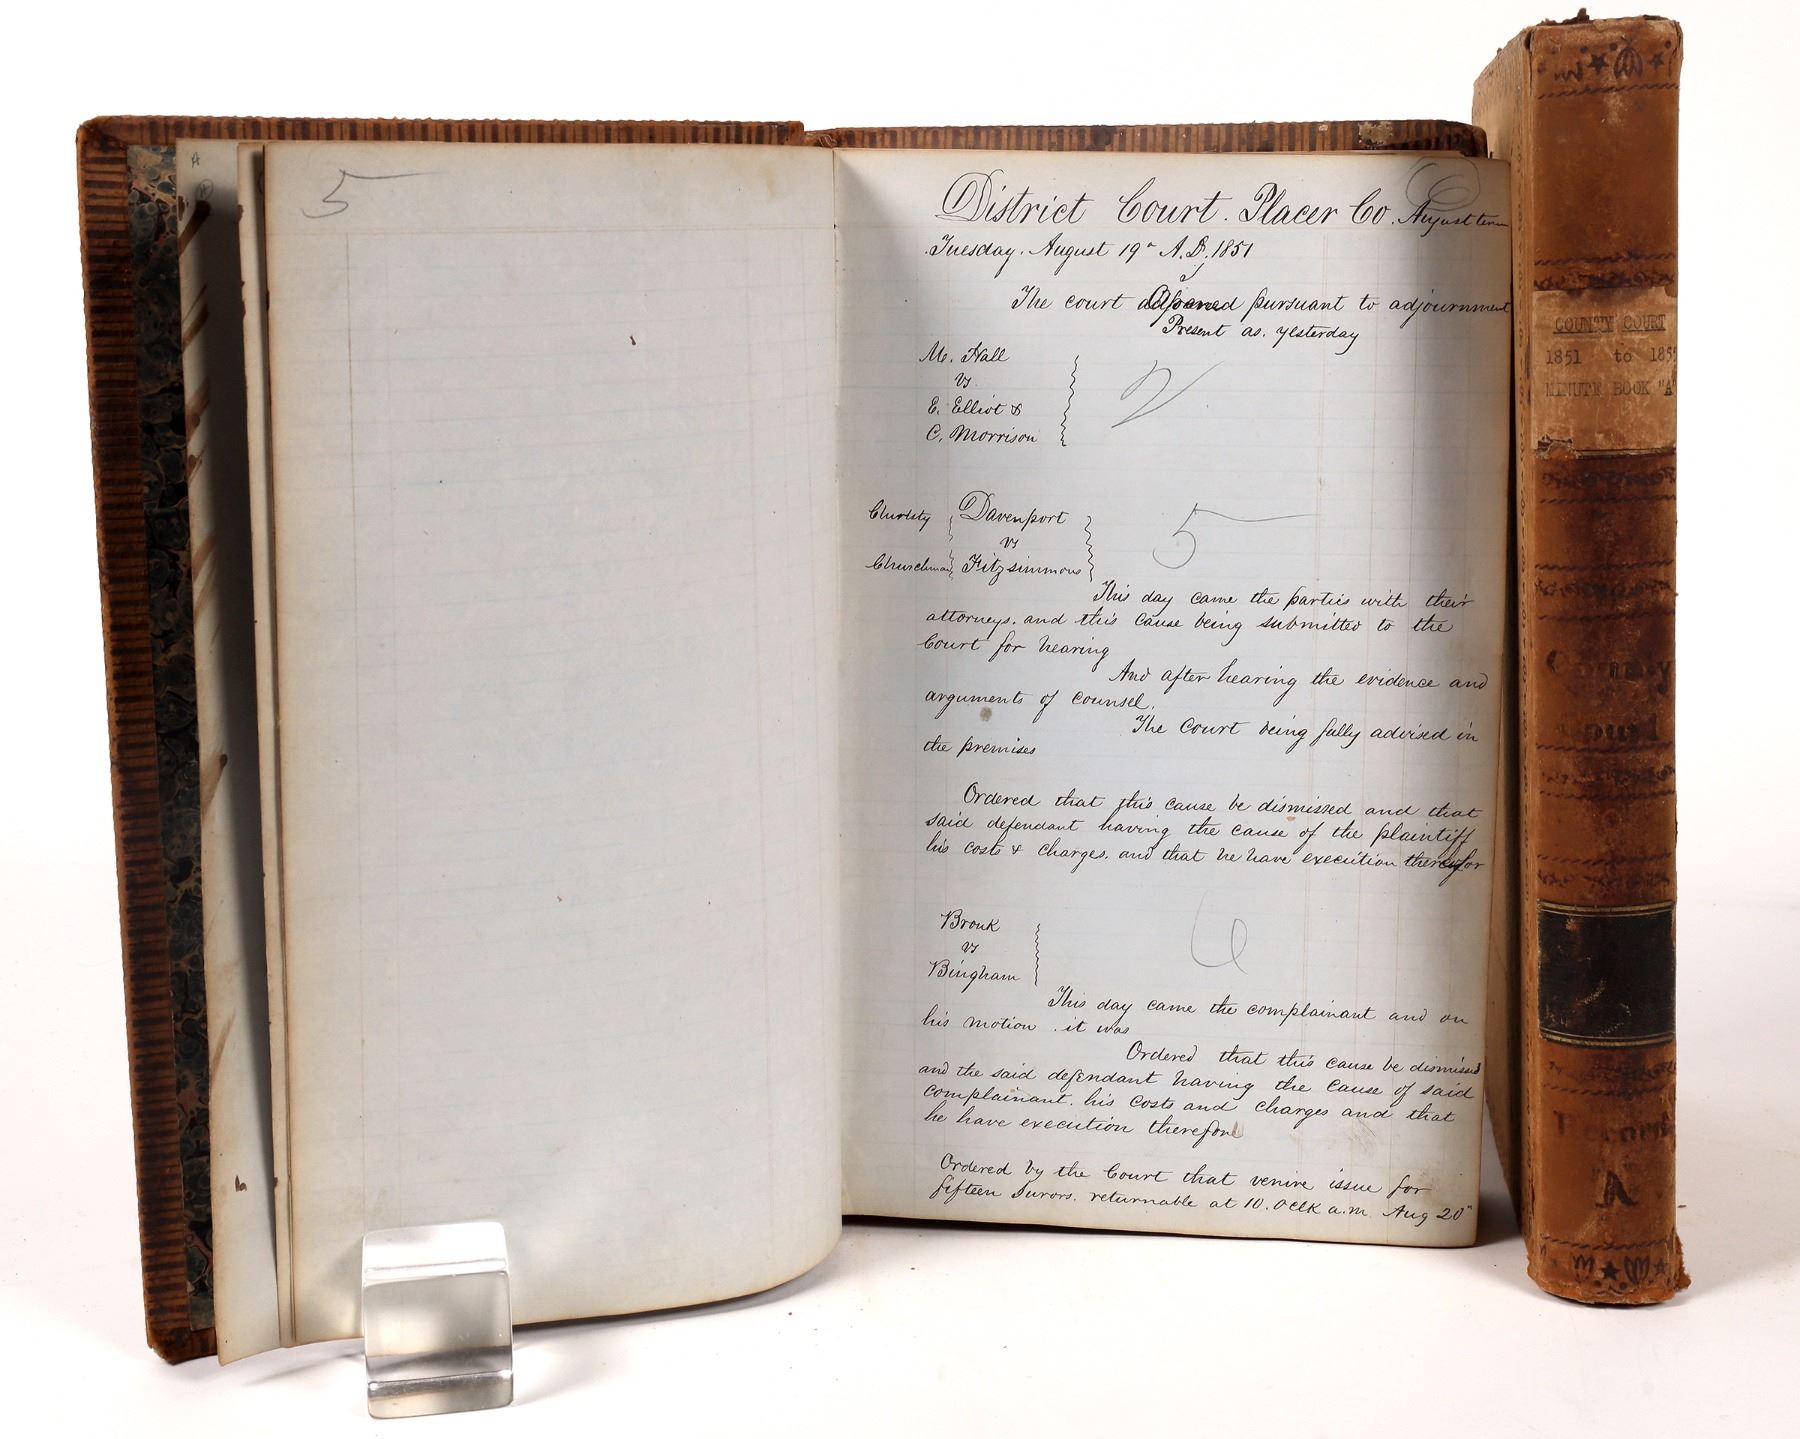 A
5
6
District Court. Placer Co. August term
Tuesday. August 19" A.D. 1851
The court opened pursuant to adjournment
Present as. yesterday
M. Hall
vs
E. Elliot &
C. Morrison
2
Christy Davenport
vs
Churchman Fitzsimmons
5
This day came the parties with their
attorneys. and this cause being submitted to the
Court for hearing
And after hearing the evidence and
arguments of counsel.
The Court being fully advised in
the premises
Ordered that this cause be dismissed and that
said defendant having the cause of the plaintiff
his costs & charges. and that he have execution therefor
Bronk
vs
Bingham
6
This day came the complainant and on
his motion . it was
Ordered that this cause be dismissed
and the said defendant having the cause of said
complainant. his costs and charges and that
he have execution therefor
Ordered by the Court that venire issue for
fifteen Jurors. returnable at 10. oclk a.m. Aug 20"
COUNTY COURT
1851 to 185
MINUTE BOOK "A"
County
Court
Record
A